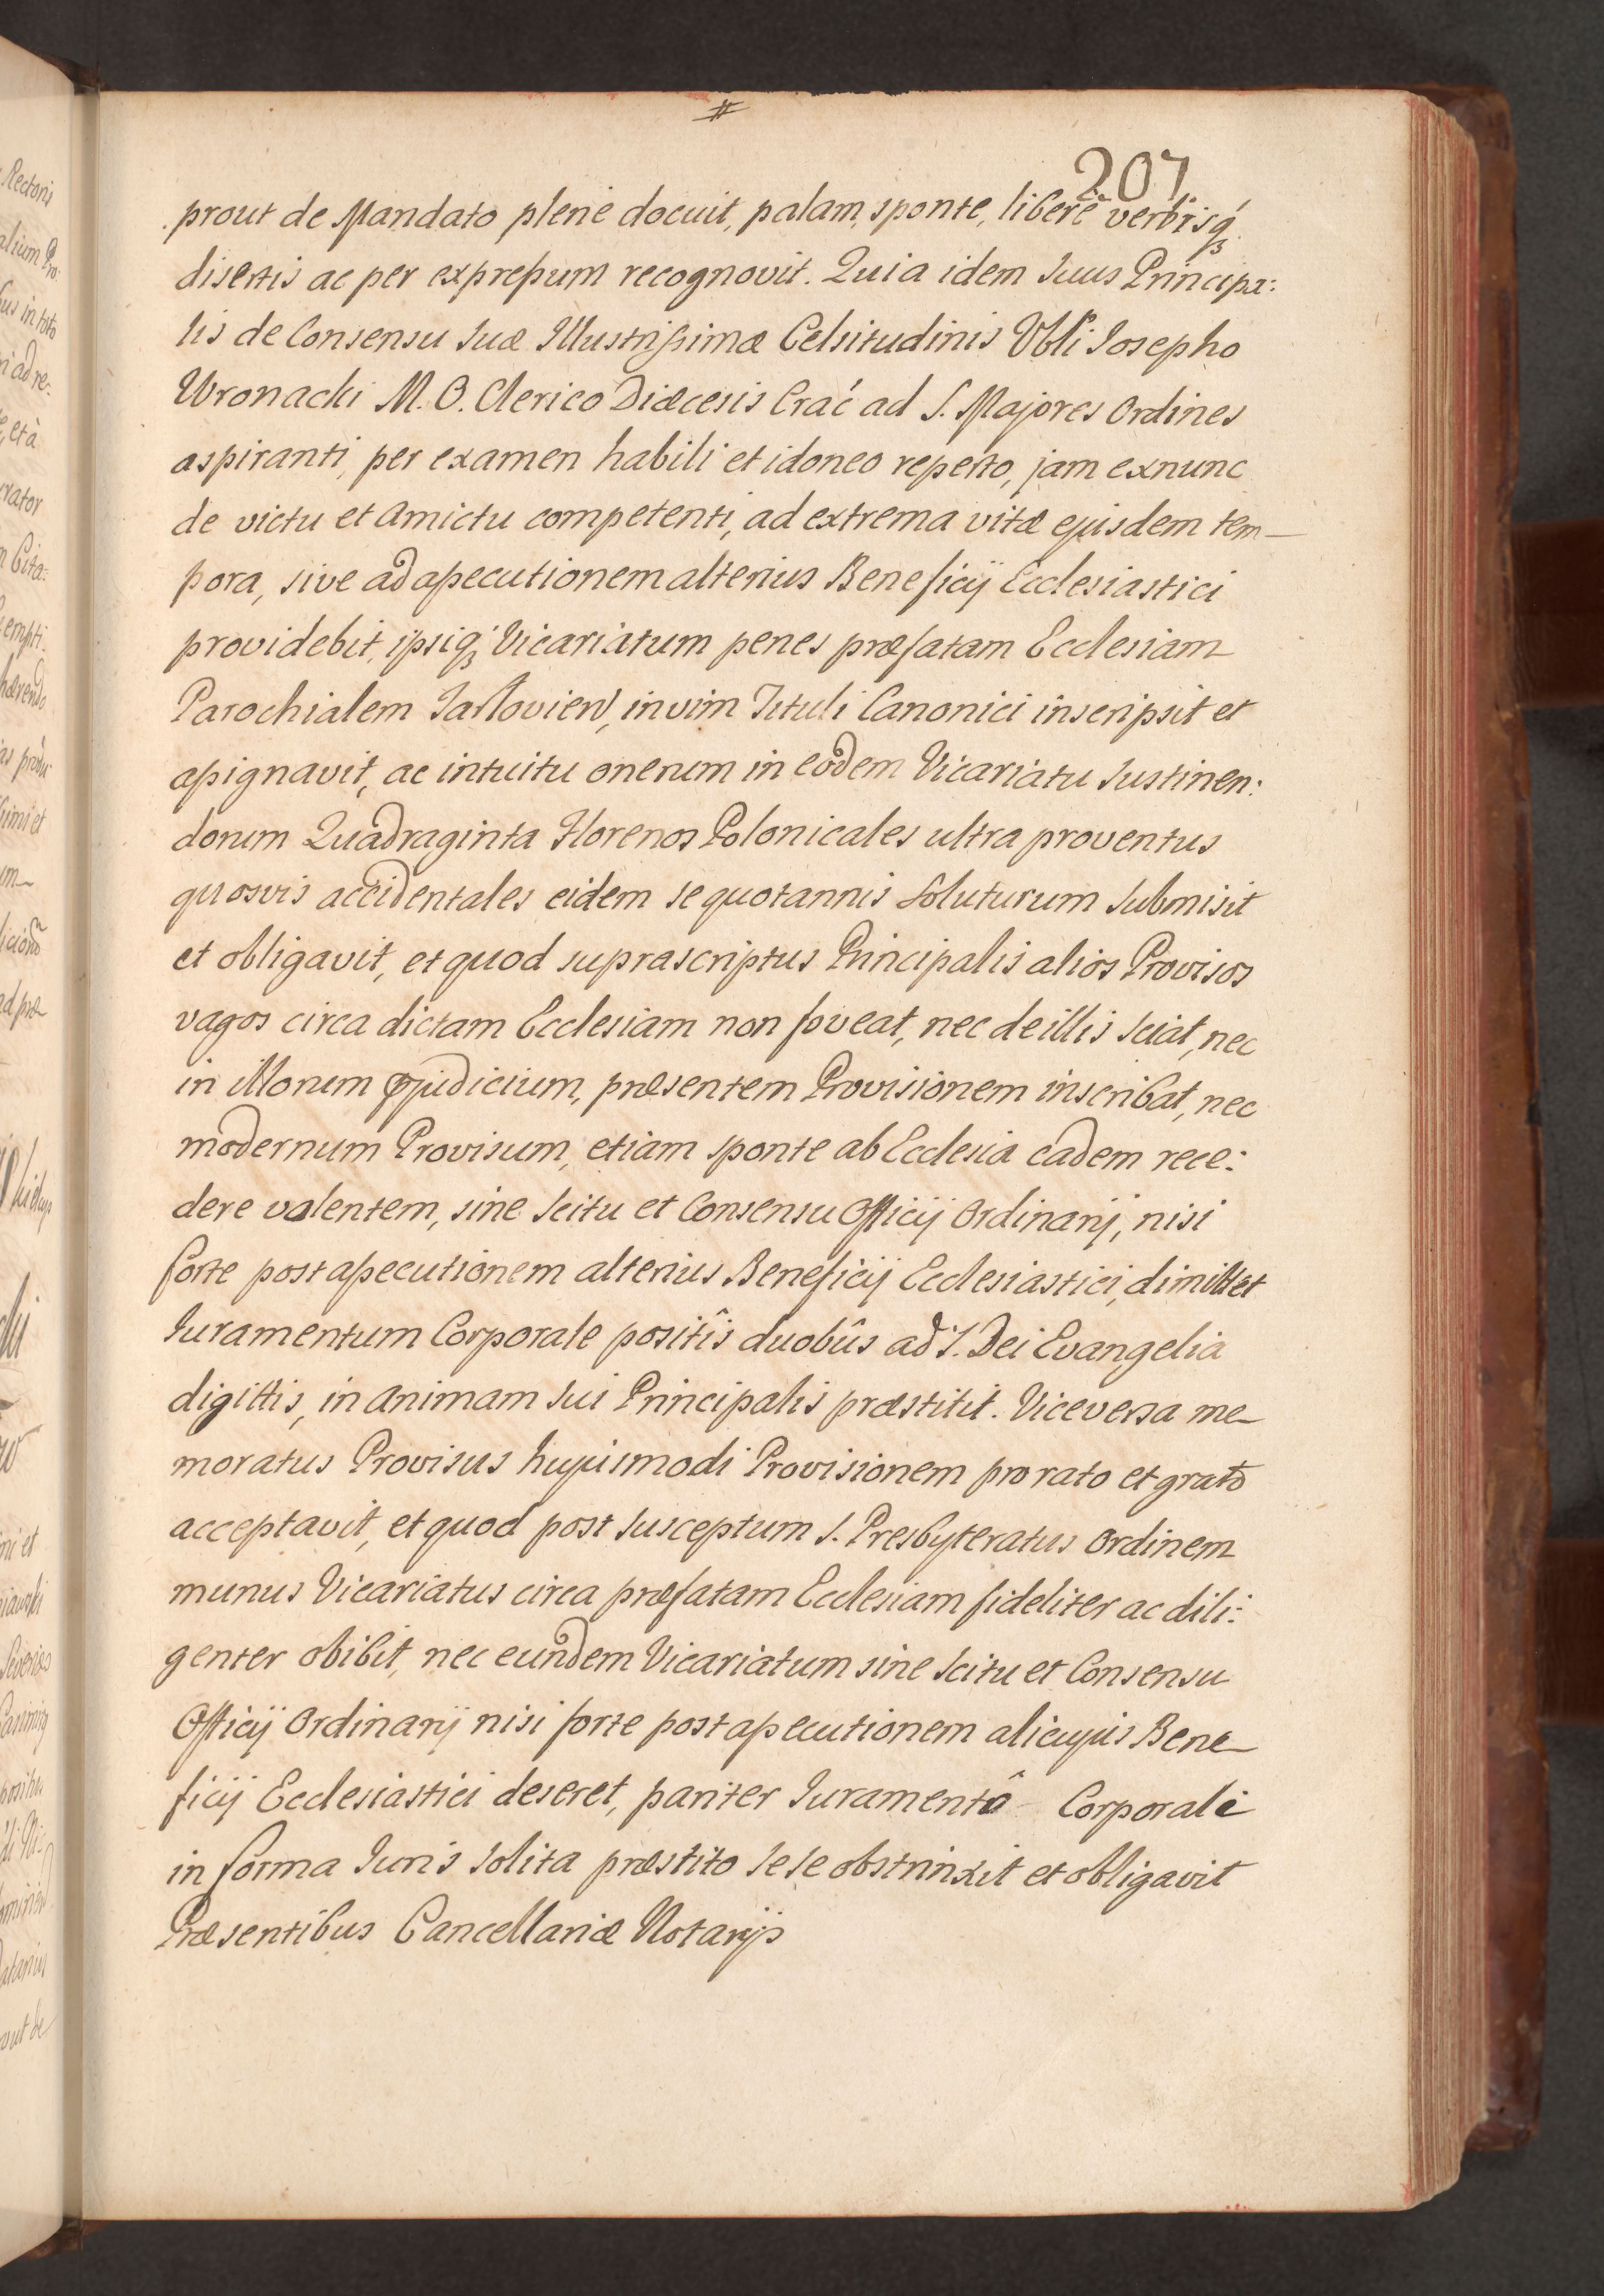 207
prout de Mandato plenè docuit, palam, sponte, liberè verbisq́3
disertis ac per expressum recognovit. Quia idem suus Principa:
lis de Consensu Suæ Illustrissimæ Celsitudinis Vbli Josepho
Wronacki M. O. Clerico Diæcesis Crać ad S. Majores Ordines
aspiranti, per examen habili et idoneo reperto, jam exnunc
de victu et amictu competenti, ad extrema vitæ ejusdem tem-
pora, sive ad assecutionem alterius Beneficij Ecclesiastici
providebit, ipsiq3 Vicariatum penes præfatam Ecclesiam
Parochialem in vim Tituli Canonici inscripsit et
assignavit, ac intuitu onerum in eodem Vicariatu sustinen:
dorum Quadraginta Florenos Polonicales ultra proventus
quosvis accidentales eidem se quotannis soluturum submisit
et obligavit, et quod suprascriptus Principalis alios Provisos
vagos circa dictam Ecclesiam non foveat, nec de illis sciat, nec
in illorum pjudicium, præsentem Provisionem inscribat, nec
modernum Provisum, etiam sponte ab Ecclesia eadem rece:
dere valentem, sine Scitu et Consensu Officij Ordinarij, nisi
forte post assecutionem alterius Beneficij Ecclesiastici, dimittet
Juramentum Corporale positîs duobûs ad S. Dei Evangelia
digittis, in animam sui Principalis præstitit. Viceversa me-
moratus Provisus hujusmodi Provisionem pro rato et grato
acceptavit, et quod post susceptum S. Presbyteratus Ordinem
munus Vicariatus circa præfatam Ecclesiam fideliter ac dili:
genter obibit, nec eundem Vicariatum sine scitu et Consensu
Officij Ordinarij nisi forte post assecutionem alicujus Bene-
ficij Ecclesiastici deseret, pariter Juramentô Corporali
in forma Juris solita præstito sese obstrinxit et obligavit
Præsentibus Cancellariæ Notarijs